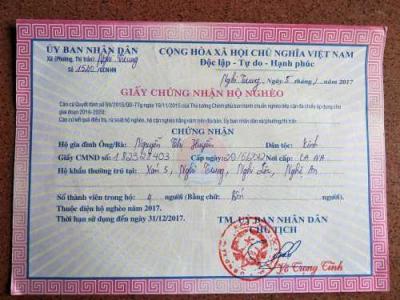 ỦY BAN NHÂN DÂN
Xã (Phường, Thị trấn) Nghi Trung
Số /GCNHN
CỘNG HÒA XÃ HỘI CHỦ NGHĨA VIỆT NAM
Độc lập - Tự do - Hạnh phúc
Nghi Trung, Ngày 5 tháng 1 năm 2017
GIẤY CHỨNG NHẬN HỘ NGHÈO
Căn cứ Quyết định số 59/2015/QĐ-TTg ngày 19/11/2015 của Thủ tướng Chính phủ ban hành chuẩn nghèo tiếp cận đa chiều áp dụng cho
giai đoạn 2016-2020;
Căn cứ kết quả điều tra, rà soát hộ nghèo, hộ cận nghèo hằng năm trên địa bàn, Ủy ban nhân dân xã/phường/thị trấn
CHỨNG NHẬN
Hộ gia đình Ông/Bà: Nguyễn Thị Huyền Dân tộc: Kinh
Giấy CMND số: Cấp ngày: Nơi cấp: CA NA
Hộ khẩu thường trú tại: Xóm 5, Nghi Trung, Nghi Lộc, Nghệ An
Số thành viên trong hộ: 4 người (Bằng chữ: Bốn người)
Thuộc diện hộ nghèo năm 2017.
Thời hạn sử dụng đến ngày 31/12/2017.
TM. ỦY BAN NHÂN DÂN
CHỦ TỊCH
Võ Trọng Tính